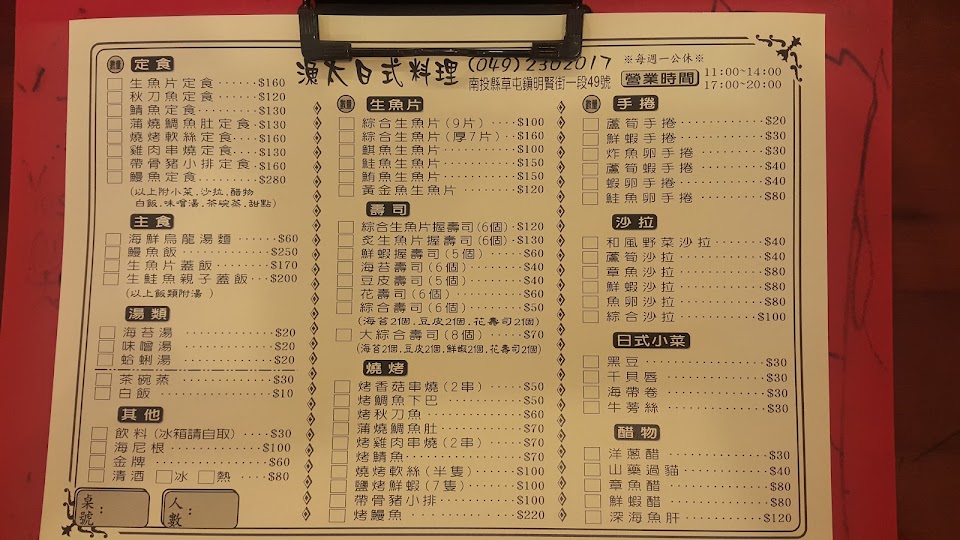 漁太日式料理 (049)2302017
南投縣草屯鎮明賢街一段49號
※每週一公休※
營業時間 11:00~14:00
17:00~20:00
數量 定食
生魚片定食······$160
秋刀魚定食······$120
鯖魚定食······$130
蒲燒鯛魚肚定食·$130
燒烤軟絲定食···$160
雞肉串燒定食···$130
帶骨豬小排定食·$160
鰻魚定食······$280
(以上附小菜.沙拉.醋物
白飯.味噌湯.茶碗蒸.甜點)
主食
海鮮烏龍湯麵······$60
鰻魚飯······$250
生魚片蓋飯······$170
生鮭魚親子蓋飯···$200
(以上飯類附湯 )
湯類
海苔湯······$20
味噌湯······$20
蛤蜊湯······$20
茶碗蒸······$30
白飯······$10
其他
飲料(冰箱請自取)···$30
海尼根······$100
金牌······$60
清酒 □冰 □熱 ···$80
桌號:
人數:
數量 生魚片
綜合生魚片(9片)···$100
綜合生魚片(厚7片)··$160
旗魚生魚片······$100
鮭魚生魚片······$150
鮪魚生魚片······$150
黃金魚生魚片······$120
壽司
綜合生魚片握壽司(6個)·$120
炙生魚片握壽司(6個)·$130
鮮蝦握壽司(5個)······$60
海苔壽司(6個)······$40
豆皮壽司(5個)······$40
花壽司(6個)······$60
綜合壽司(6個)······$50
(海苔2個.豆皮2個.花壽司2個)
大綜合壽司(8個)····$70
(海苔2個.豆皮2個.鮮蝦2個.花壽司2個)
燒烤
烤香菇串燒(2串)····$50
烤鯛魚下巴······$50
烤秋刀魚······$60
蒲燒鯛魚肚······$70
烤雞肉串燒(2串)····$70
烤鯖魚······$70
燒烤軟絲(半隻)·····$100
鹽烤鮮蝦(7隻)·····$100
帶骨豬小排······$100
烤鰻魚······$220
數量 手捲
蘆筍手捲······$20
鮮蝦手捲······$30
炸魚卵手捲······$30
蘆筍蝦手捲······$40
蝦卵手捲······$40
鮭魚卵手捲······$80
沙拉
和風野菜沙拉······$40
蘆筍沙拉······$40
章魚沙拉······$80
鮮蝦沙拉······$80
魚卵沙拉······$80
綜合沙拉······$100
日式小菜
黑豆······$30
干貝唇······$30
海帶卷······$30
牛蒡絲······$30
醋物
洋蔥醋······$30
山藥過貓······$40
章魚醋······$80
鮮蝦醋······$80
深海魚肝······$120